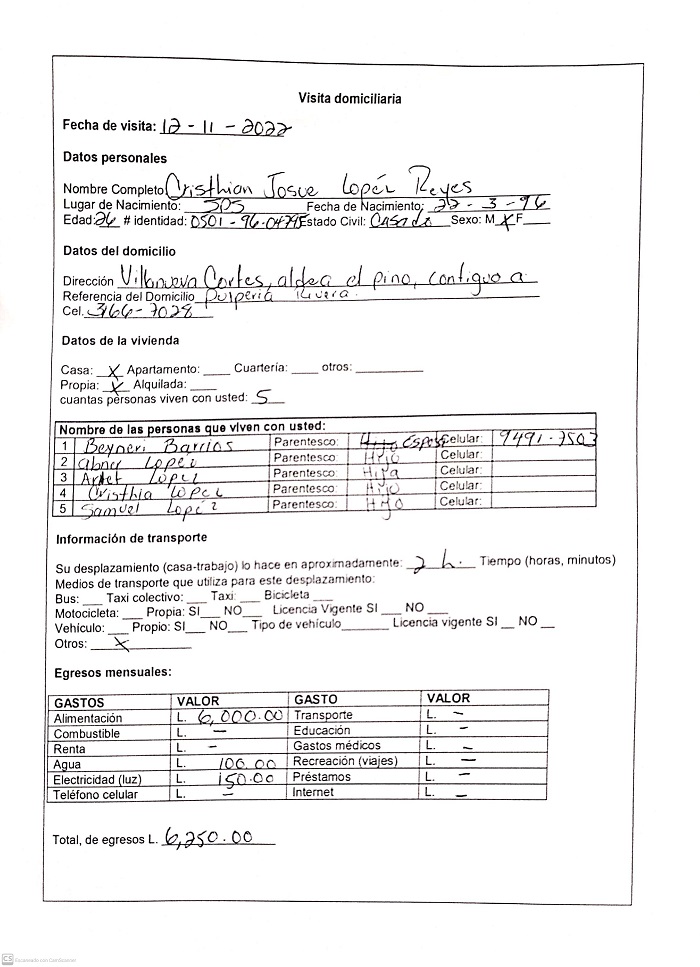 Visita domiciliaria
Fecha de visita: 12 - 11 - 2022
Datos personales
Nombre Completo Cristhian Josue Lopéz Reyes
Lugar de Nacimiento: SPS Fecha de Nacimiento: 22 - 3 - 96
Edad: 26 # identidad: 0501 - 96-04795 Estado Civil: Casado Sexo: M X F
Datos del domicilio
Dirección Villanueva Cortes, aldea el pino, contiguo a
Referencia del Domicilio Pulperia Rivera.
Cel. 3166-7028
Datos de la vivienda
Casa: X Apartamento: ____ Cuartería: ____ otros: ____
Propia: X Alquilada: ____
cuantas personas viven con usted: 5
Nombre de las personas que viven con usted:
1 Beyneri Barrios Parentesco: Esposa Celular: 9491-7503
2 Abner Lopez Parentesco: Hijo Celular:
3 Lopez Parentesco: Hija Celular:
4 Cristhia Lopez Parentesco: Hijo Celular:
5 Samuel Lopéz Parentesco: Hijo Celular:
Información de transporte
Su desplazamiento (casa-trabajo) lo hace en aproximadamente: 2 h. Tiempo (horas, minutos)
Medios de transporte que utiliza para este desplazamiento:
Bus: ___ Taxi colectivo: ___ Taxi: ___ Bicicleta ___
Motocicleta: ___ Propia: SI___ NO___ Licencia Vigente SI ___ NO ___
Vehículo: ___ Propio: SI___ NO___ Tipo de vehículo_______ Licencia vigente SI __ NO __
Otros: X
Egresos mensuales:
GASTOS VALOR GASTO VALOR
Alimentación L. 6,000.00 Transporte L. –
Combustible L. – Educación L. –
Renta L. – Gastos médicos L. –
Agua L. 100.00 Recreación (viajes) L. –
Electricidad (luz) L. 150.00 Préstamos L. –
Teléfono celular L. – Internet L. –
Total, de egresos L. 6,250.00
CS Escaneado con CamScanner